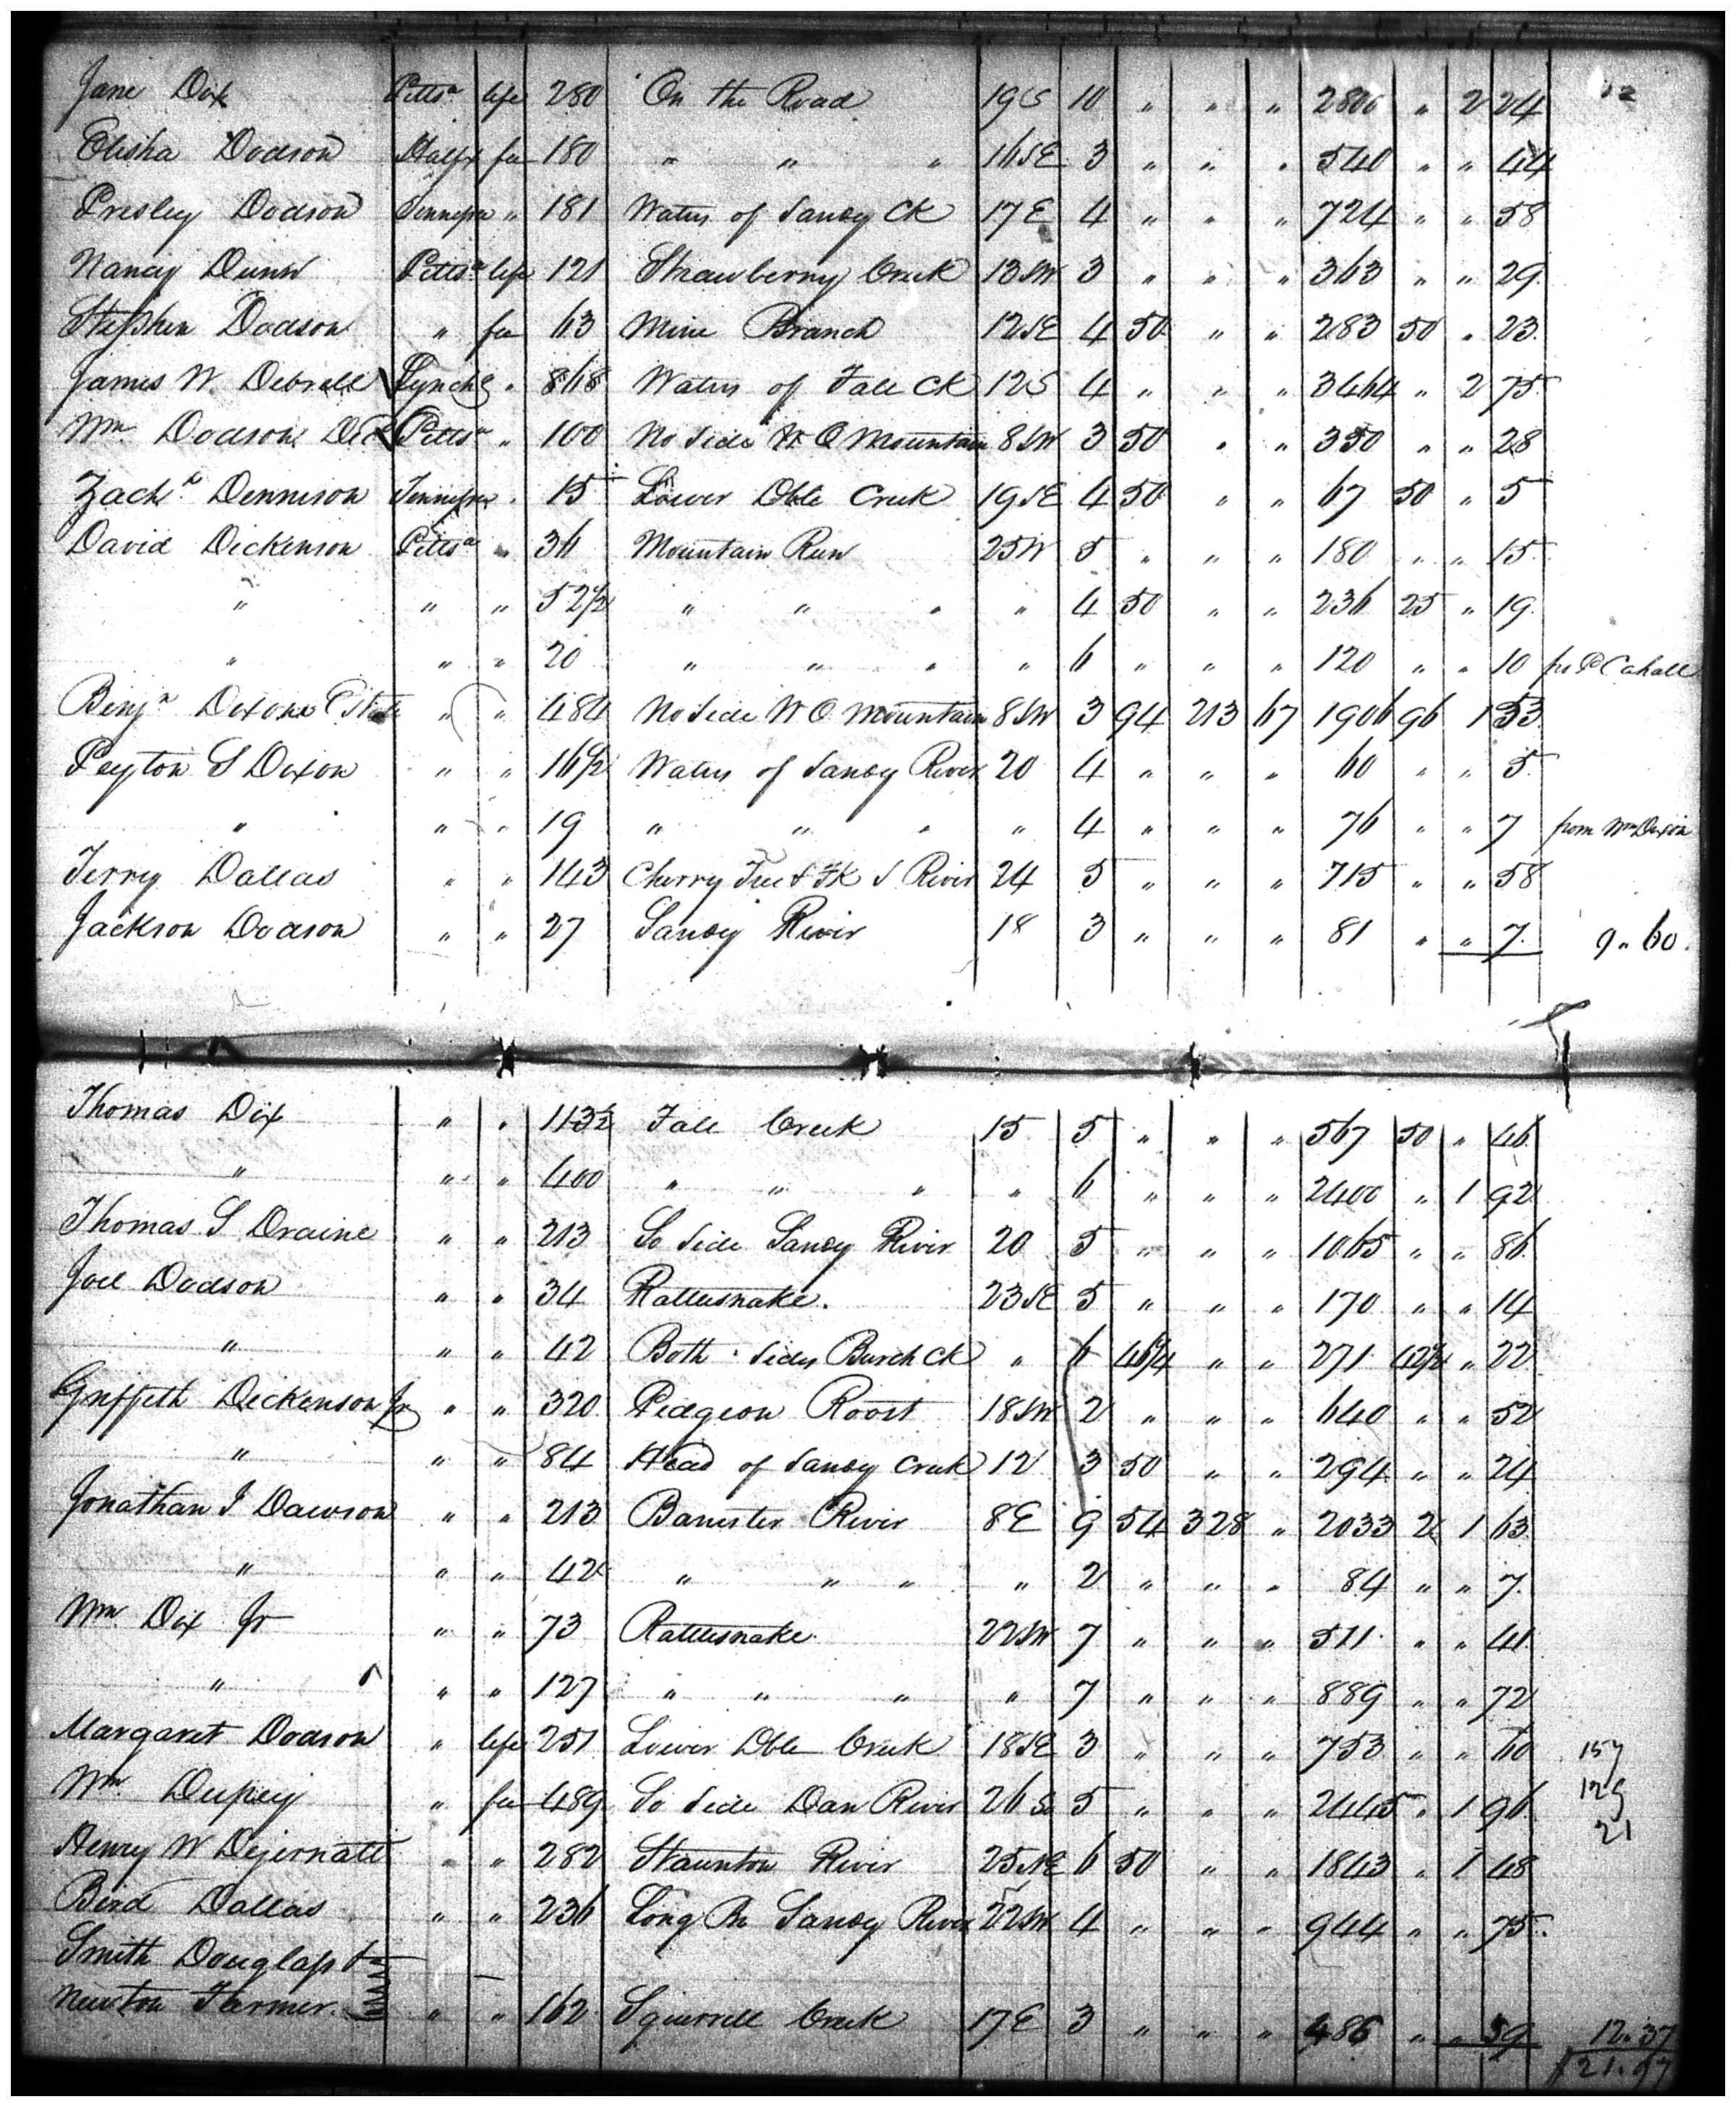 Jane Dix Pittsa life 280 On the Road 19 S 10 " " " 2800 " 2 24
Elisha Dodson Halfx fee 180 " " " 16 SE 3 " " " 540 " " 44
Presley Dodson Tennessee " 181 Waters of Sandy Ck 17 E 4 " " " 724 " " 58
Nancy Dunn Pittsa life 121 Strawberry Creek 13 SW 3 " " " 363 " " 29
Stephen Dodson " fee 63 Mine Branch 12 SE 4 50 " " 283 50 " 23
James W. Debrell Lynchg " 868 Waters of Fall Ck 12 S 4 " " " 3464 " 2 75
Wm Dodson Pittsa " 100 No Side W O Mountain 8 SW 3 50 " " 350 " " 28
Zachh Dennison Tennessee " 15 Lower Dble Creek 19 SE 4 50 " " 67 50 " 5
David Dickenson Pittsa " 36 Mountain Run 25 W 5 " " " 180 " " 15
" " " 52 1/2 " " " " 4 50 " " 236 25 " 19
" " " 20 " " " " 6 " " " 120 " " 10 Cahall
Benjn Dixons Estate " " 484 No Side W O Mountain 8 SW 3 94 213 67 1906 96 1 53
Peyton S Dixon " " 16 1/2 Waters of Sandy River 20 4 " " " 60 " " 5
" " " 19 " " " " 4 " " " 76 " " 7 from Wm Dixon
Terry Dallas " " 143 Cherry Tree & Fk S River 24 5 " " " 715 " " 58
Jackson Dodson " " 27 Sandy River 18 3 " " " 81 " " 7 9 " 60
Thomas Dix " " 113 1/2 Fall Creek 15 5 " " " 567 50 " 46
" " " 400 " " " " 6 " " " 2400 " 1 92
Thomas S Draine " " 213 So Side Sandy River 20 5 " " " 1065 " " 86
Joel Dodson " " 34 Rattlesnake. 23 SE 5 " " " 170 " " 14
" " " 42 Both Sides Burch Ck " 6 46 1/4 " " 271 42 1/2 " 22
Griffeth Dickenson Jr " " 320 Pidgeon Roost 18 SW 2 " " " 640 " " 52
" " " 84 Head of Sandy Creek 12 3 50 " " 294 " " 24
Jonathan I Dawson " " 213 Banister River 8 E 9 54 328 " 2033 2 1 63
" " " 42 " " " " 2 " " " 84 " " 7
Wm Dix Jr " " 73 Rattlesnake 22 SW 7 " " " 511 " " 41
" " " 127 " " " " 7 " " " 889 " " 72
Margaret Dodson " life 251 Lower Dble Creek 18 SE 3 " " " 753 " " 60 157
Wm Dupey " fee 489 So Side Dan River 26 S 5 " " " 2445 " 1 96 129
21
Henry W Dejernatt " " 282 Staunton River 25 NE 6 50 " " 1843 " 1 48
Bird Dallas " " 236 Long Br Sandy River 22 SW 4 " " " 944 " " 75
Smith Douglass &
Newton Farmer " " 162 Squirrell Creek 17 E 3 " " " 486 " " 39 12 " 37
21.97